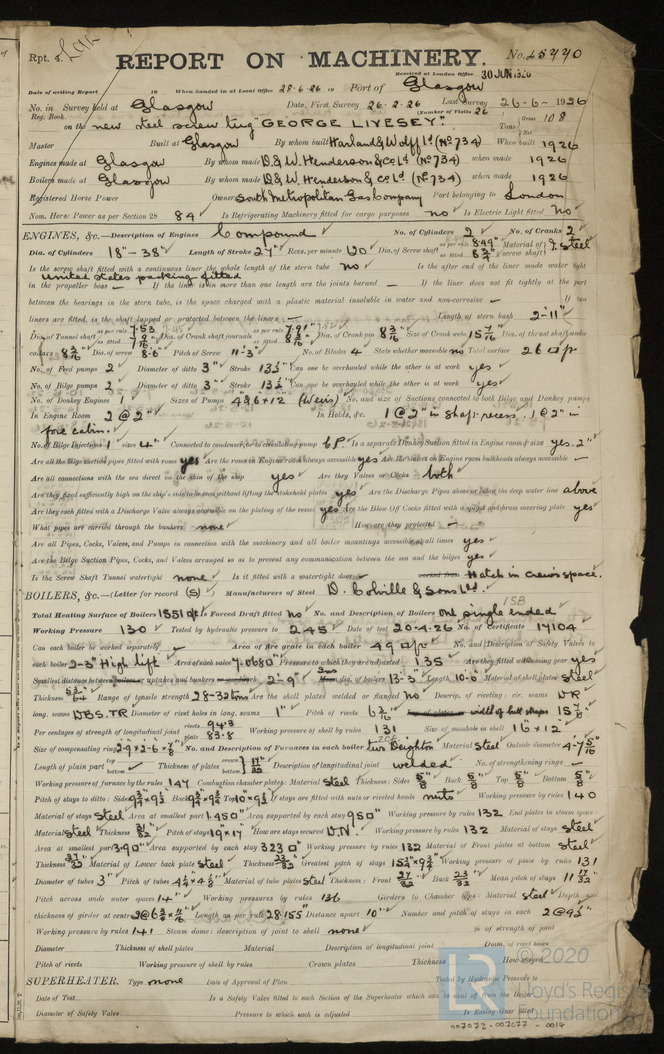 Rpt. 4.
REPORT ON MACHINERY.
No. 45440
Received at London Office 30 JUN 1926
Date of writing Report 19 When handed in at Local Office 28.6.26 19 Port of Glasgow
No. in Survey held at Glasgow Date, First Survey 26.2.26 Last Survey 26-6-1926
Reg. Book. (Number of Visits 26
on the new steel screw tug "GEORGE LIVESEY" Tons Gross 108 Net
Master Built at Glasgow By whom built Harland & Wolff Ld (No 734) When built 1926
Engines made at Glasgow By whom made D. & W. Henderson & Co Ld (No 734) when made 1926
Boilers made at Glasgow By whom made D. & W. Henderson & Co Ld (No 734) when made 1926
Registered Horse Power Owners South Metropolitan Gas Company Port belonging to London
Nom. Horse Power as per Section 28 84 Is Refrigerating Machinery fitted for cargo purposes no Is Electric Light fitted No
ENGINES, &c.—Description of Engines Compound No. of Cylinders 2 No. of Cranks 2
Dia. of Cylinders 18"-38" Length of Stroke 27" Revs. per minute 120 Dia. of Screw shaft as per rule 8.49" as fitted Material of screw shaft I. Steel
Is the screw shaft fitted with a continuous liner the whole length of the stern tube no Is the after end of the liner made water tight
united states packing fitted
in the propeller boss — If the liner is in more than one length are the joints burned — If the liner does not fit tightly at the part
between the bearings in the stern tube, is the space charged with a plastic material insoluble in water and non-corrosive — If two
liners are fitted, is the shaft lapped or protected between the liners — Length of stern bush 2-11"
Dia. of Tunnel shaft as per rule 7.53 as fitted Dia. of Crank shaft journals as per rule 7.91" as fitted Dia. of Crank pin 8 3/16 Size of Crank webs 15 7/16 Dia. of thrust shaft under
collars 8 3/16 Dia. of screw 8-6" Pitch of Screw 11-3" No. of Blades 4 State whether moveable no Total surface 26 □ft
No. of Feed pumps 2 Diameter of ditto 3" Stroke 13½" Can one be overhauled while the other is at work yes
No. of Bilge pumps 2 Diameter of ditto 3" Stroke 13½" Can one be overhauled while the other is at work yes
No. of Donkey Engines 1 Sizes of Pumps 4 & 6 x 12 (Weirs) No. and size of Suctions connected to both Bilge and Donkey pumps
In Engine Room 2 @ 2" In Holds, &c. 1 @ 2" in shaft recess. 1 @ 2" in
fore cabin.
No. of Bilge Injections 1 sizes 4" Connected to condenser, or to circulating pump C.P. Is a separate Donkey Suction fitted in Engine room & size yes. 2"
Are all the bilge suction pipes fitted with roses yes Are the roses in Engine room always accessible yes Are the sluices on Engine room bulkheads always accessible —
Are all connections with the sea direct on the skin of the ship yes Are they Valves or Cocks both
Are they fixed sufficiently high on the ship's side to be seen without lifting the stokehold plates yes Are the Discharge Pipes above or below the deep water line above
Are they each fitted with a Discharge Valve always accessible on the plating of the vessel yes Are the Blow Off Cocks fitted with a spigot and brass covering plate yes
What pipes are carried through the bunkers none How are they protected —
Are all Pipes, Cocks, Valves, and Pumps in connection with the machinery and all boiler mountings accessible at all times yes
Are the Bilge Suction Pipes, Cocks, and Valves arranged so as to prevent any communication between the sea and the bilges yes
Is the Screw Shaft Tunnel watertight none Is it fitted with a watertight door worked from Hatch in crew's space.
BOILERS, &c.—(Letter for record (S)) Manufacturers of Steel D. Colville & Sons Ltd
1SB
Total Heating Surface of Boilers 1551 □ft Is Forced Draft fitted no No. and Description of Boilers one single ended
Working Pressure 130 Tested by hydraulic pressure to 245 Date of test 20-4-26 No. of Certificate 17104
Can each boiler be worked separately — Area of fire grate in each boiler 49 □ft No. and Description of Safety Valves to
each boiler 2-3" High lift Area of each valve 7.0680" Pressure to which they are adjusted 135 Are they fitted with easing gear yes
Smallest distance between boilers or uptakes and bunkers or woodwork 2'-9" dia. of boilers 13-3" Length 10-6 Material of shell plates Steel
Thickness Range of tensile strength 28-32 tons Are the shell plates welded or flanged no Descrip. of riveting: cir. seams DR
long. seams DBS.TR Diameter of rivet holes in long. seams 1" Pitch of rivets width of butt straps 15
Per centages of strength of longitudinal joint rivets 94.3 plate 83.8 Working pressure of shell by rules 131 Size of manhole in shell 16"x12"
Size of compensating ring 2-9 x 2-6 x 7/8 No. and Description of Furnaces in each boiler two Deighton Material Steel Outside diameter 4-7 5/16
Length of plain part top bottom Thickness of plates crown bottom 17/32 Description of longitudinal joint welded No. of strengthening rings —
Working pressure of furnace by the rules 147 Combustion chamber plates: Material Steel Thickness: Sides 5/8" Back 5/8" Top 5/8" Bottom 5/8
Pitch of stays to ditto: Sides Back Top If stays are fitted with nuts or riveted heads nuts Working pressure by rules 140
Material of stays Steel Area at smallest part Area supported by each stay Working pressure by rules 132 End plates in steam space
Material Steel Thickness 31/32 Pitch of stays 19"x17" How are stays secured D.N. Working pressure by rules 132 Material of stays Steel
Area at smallest part Area supported by each stay 323 □ Working pressure by rules 132 Material of Front plates at bottom Steel
Thickness Material of Lower back plate Steel Thickness Greatest pitch of stays Working pressure of plate by rules 131
Diameter of tubes 3" Pitch of tubes Material of tube plates Steel Thickness: Front 27/32 Back 23/32 Mean pitch of stays 11 17/32
Pitch across wide water spaces 14" Working pressures by rules 136 Girders to Chamber tops: Material Steel Depth and
thickness of girder at centre Length as per rule 28.155 Distance apart 10" Number and pitch of stays in each 2 @ 9½"
Working pressure by rules 141 Steam dome: description of joint to shell none % of strength of joint
Diameter Thickness of shell plates Material Description of longitudinal joint Diam. of rivet holes
Pitch of rivets Working pressure of shell by rules Crown plates Thickness How stayed
SUPERHEATER. Type none Date of Approval of Plan Tested by Hydraulic Pressure to
Date of Test Is a Safety Valve fitted to each Section of the Superheater which can be shut off from the Boiler
Diameter of Safety Valve Pressure to which each is adjusted Is Easing Gear fitted
© 2020
Lloyd's Register
Foundation
007072-007077-0014